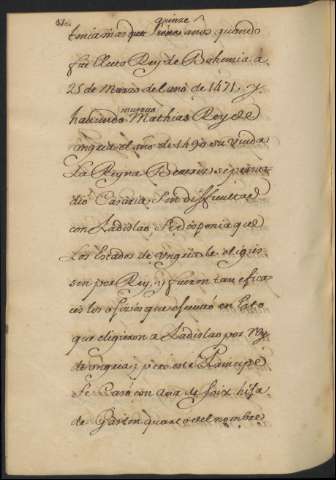 quinze
tenia mas que años, quando
fue Electo Rey de Bohemia a
25 de Marzo del año de 1471, y
haviendo muerto Mathias Rey de
Ungria el año de 1490 su Viuda
La Reyna Beatriz se persua
dio Casaria sin difficultad
con Ladislao, si disponia que
Los Estados de Ungria le eligies
sen por Rey, y fueron tan efica
ces los oficios que efectuó en Esto
que eligieron a Ladislao por Rey
de Ungria; pero este Principe
se Casó con Ana de Foix hija
de Gaston quarto del nombre